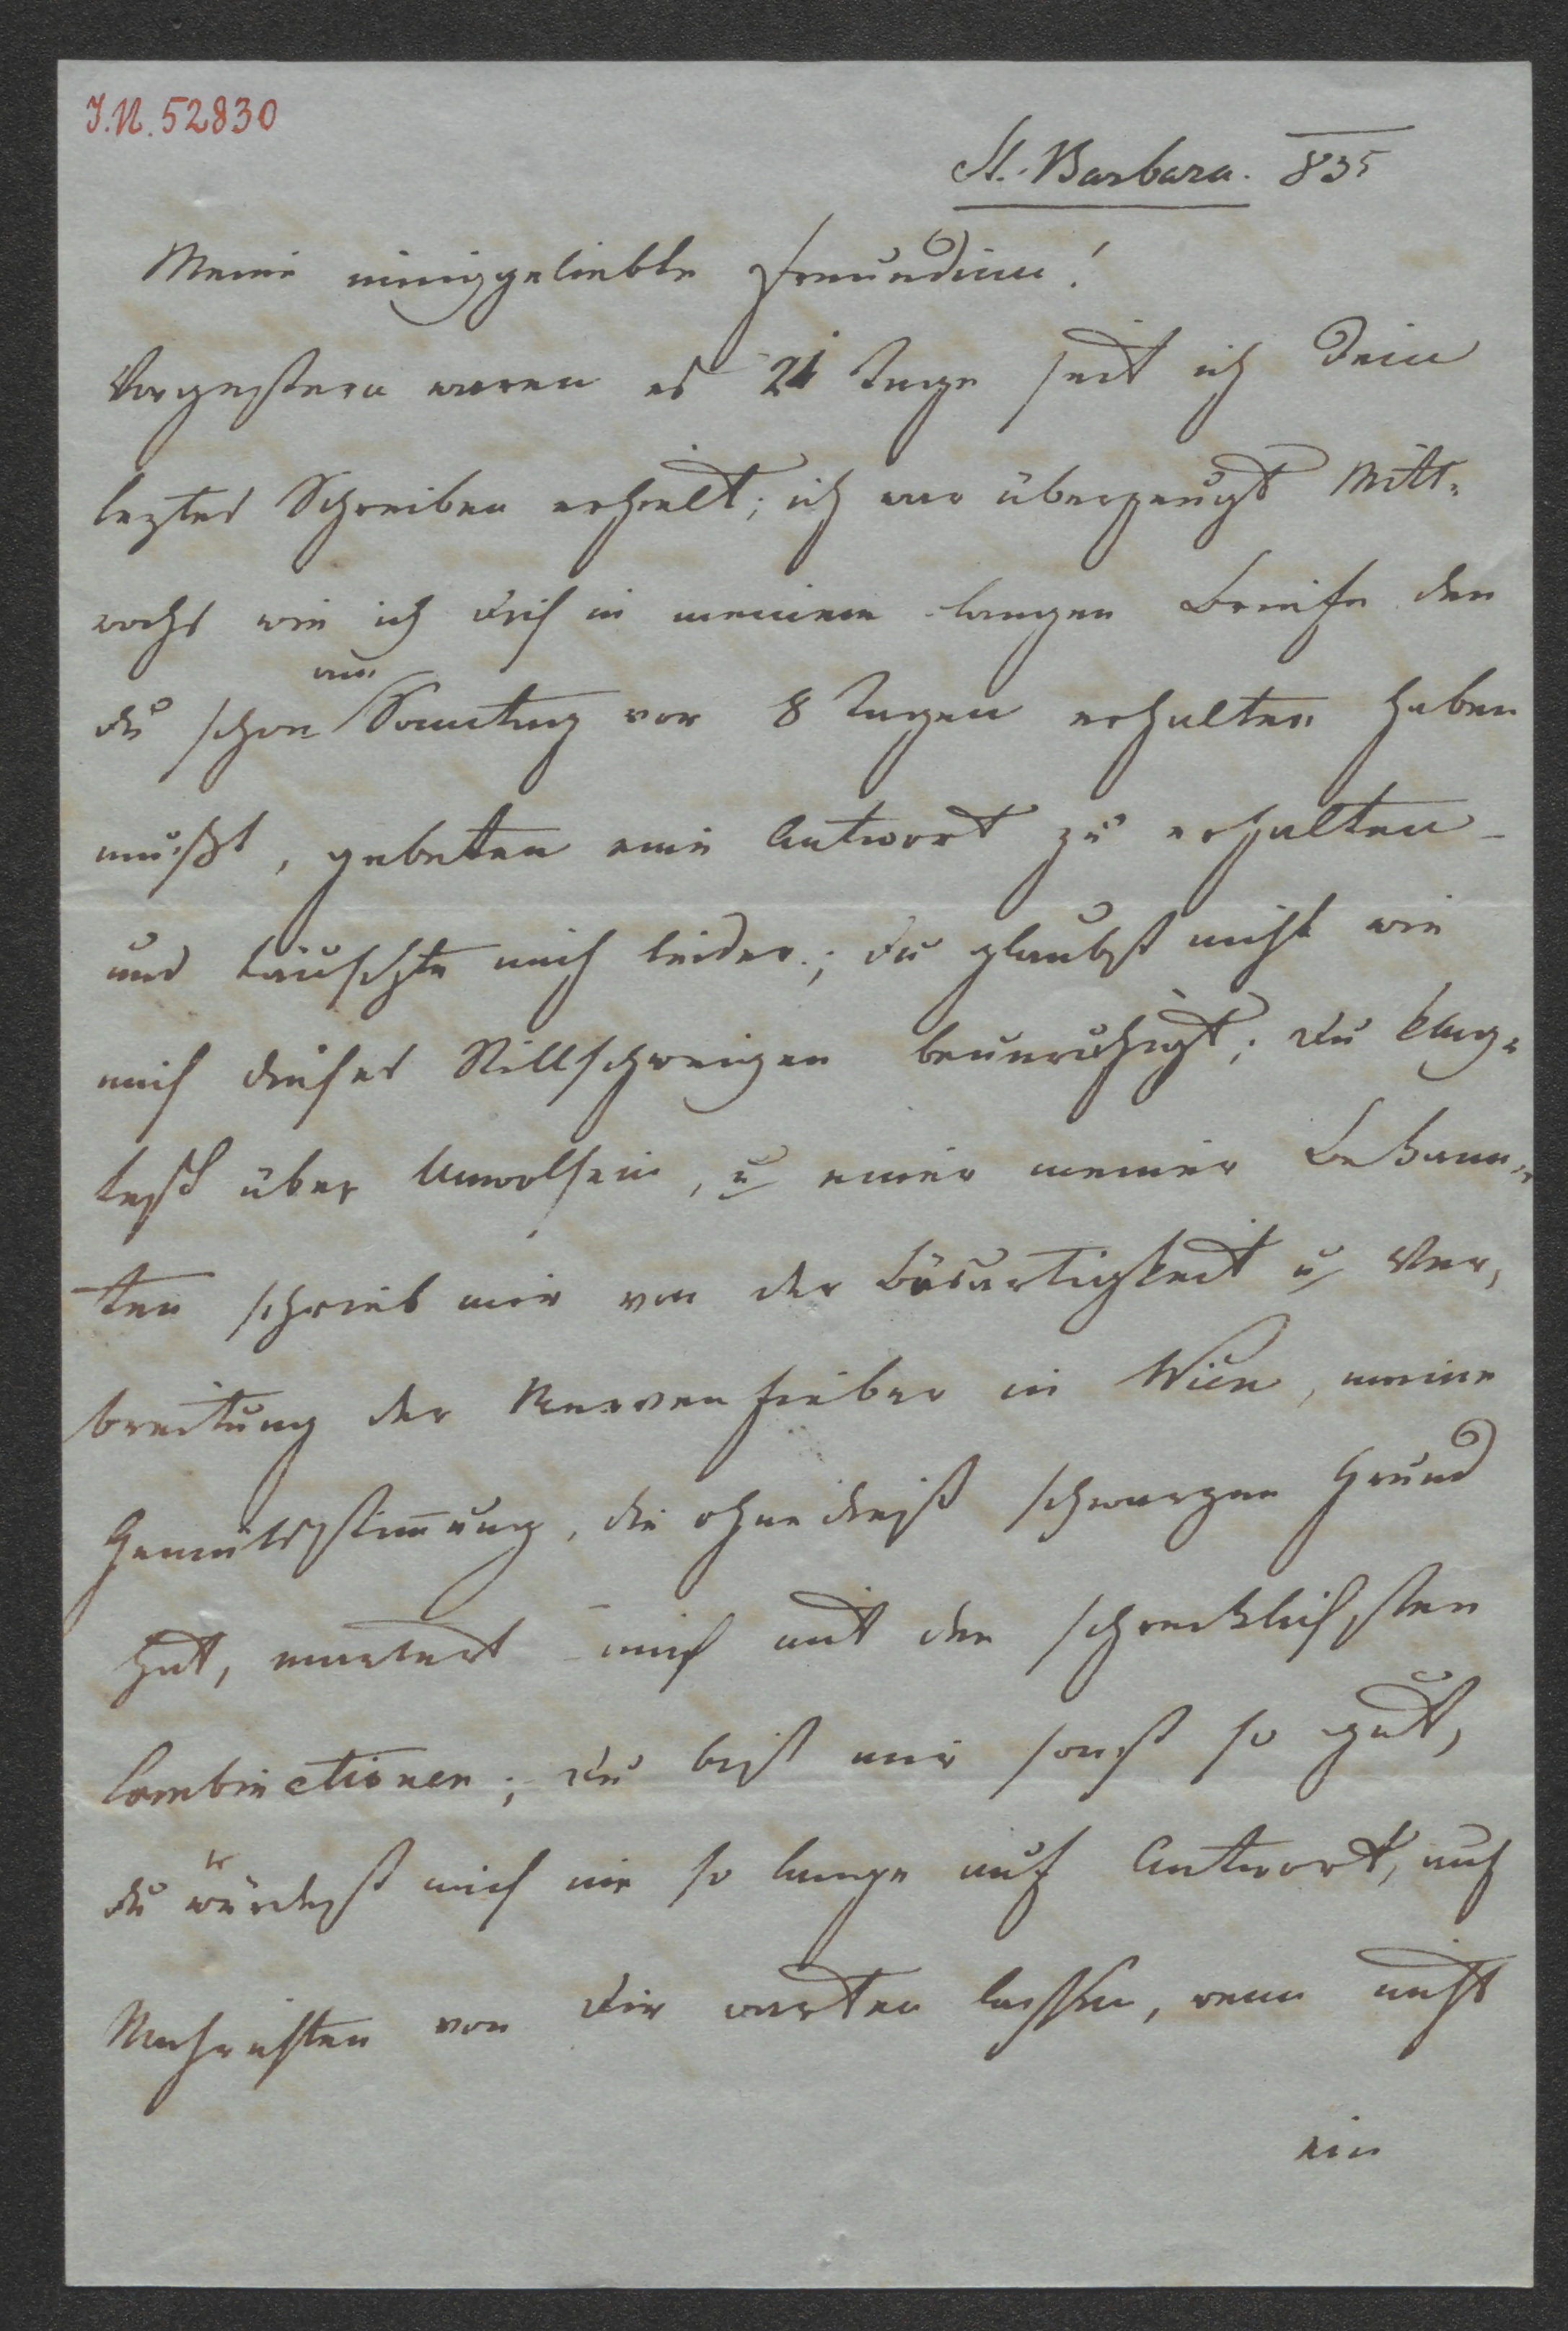 I.N. 52830
St. Barbara. 835
Meine inniggeliebte Freundinn!
Vorgestern waren es 21 Tage seit ich Dein
leztes Schreiben erhielt; ich war überzeugt Mitt=
wochs wie ich dich in meinem langen Briefe den
am
du schon Sonntag vor 8 Tagen erhalten haben
mußt, gebeten eine Antwort zu erhalten –
und täuschte mich leider; du glaubst nicht wie
mich dieses Stillschweigen beunruhigt; du klag=
test über Unwolsein, u einer meiner Bekann=
ten schrieb mir von der Bösartigkeit u Ver,
breitung der Nervenfieber in Wien, meine
Gemütsstim̄ung, die ohnedieß schwarzen Grund
hat, martert mich mit den schrecklichsten
Combinationen; du bist mir sonst so gut,
du würdest mich nie so lange auf Antwort, auf
Nachrichten von dir warten lassen, wenn nicht
ein